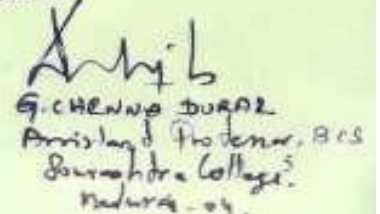 G. CHENNA DURAI
Assistant Professor, BCS
Sourashtra College,
Madurai - 04.